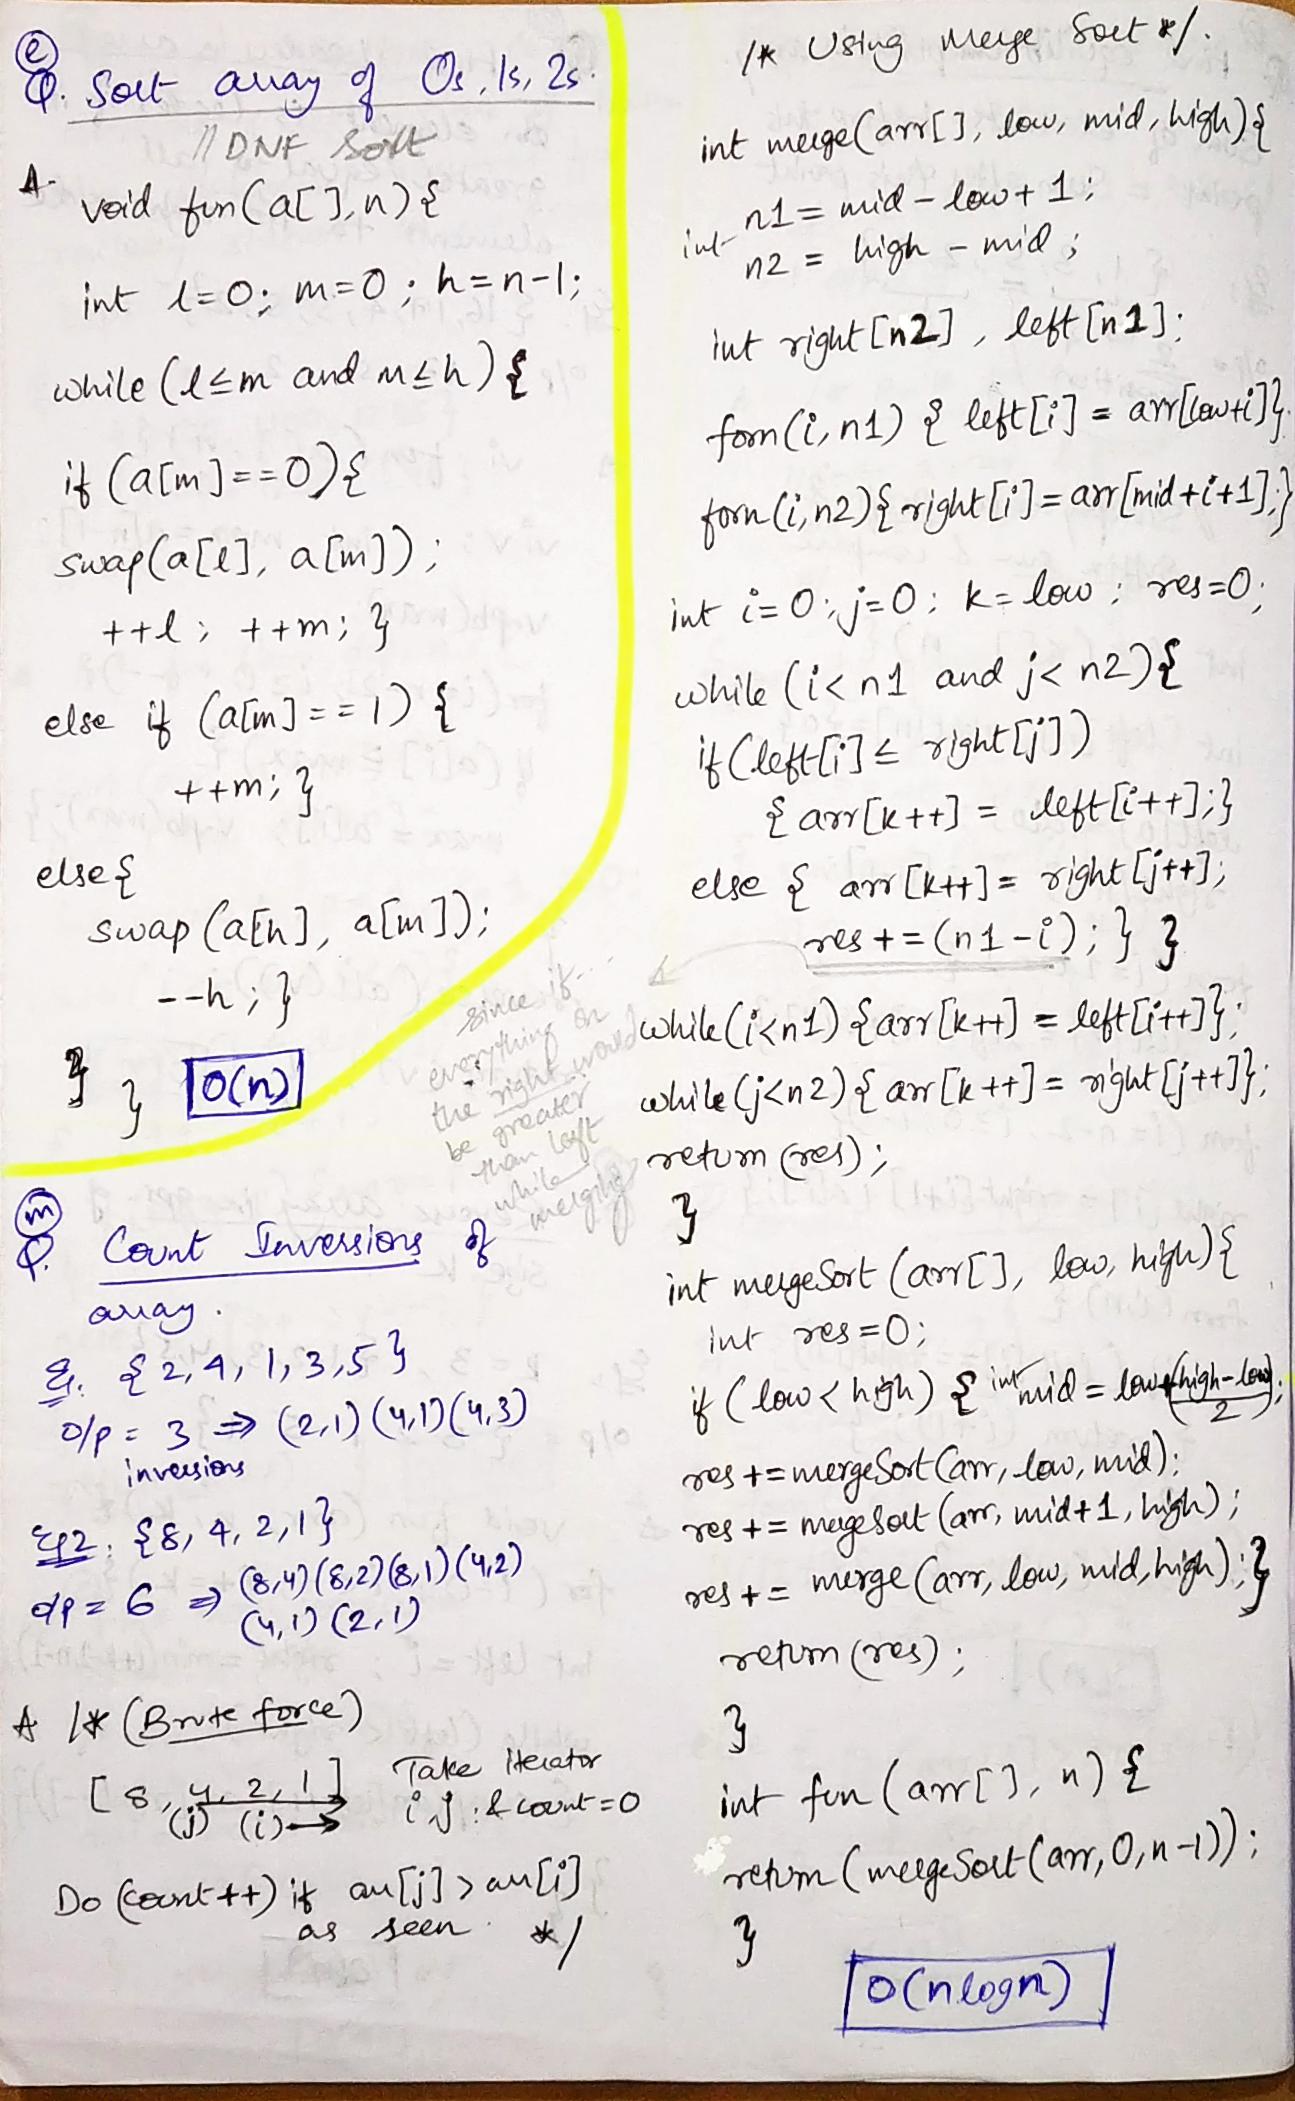 (e)
Q. Sort array of 0s, 1s, 2s.
// DNF Sort
A. void fun(a[], n) {
int l=0; m=0; h=n-1;
while (l≤m and m≤h) {
if (a[m]==0) {
swap(a[l], a[m]);
++l; ++m; }
else if (a[m]==1) {
++m; }
else {
swap (a[h], a[m]);
--h; }
} } O(n)
(m)
Q. Count Inversions of
array.
Eg. {2, 4, 1, 3, 5}
o/p = 3 ⇒ (2,1) (4,1) (4,3)
inversions
Eg2. {8, 4, 2, 1}
o/p = 6 ⇒ (8,4) (8,2) (8,1) (4,2)
(4,1) (2,1)
A /* (Brute force)
[8, 4, 2, 1] Take iterator
(j) (i)→ i, j & count=0
Do (count++) if arr[j] > arr[i]
as seen. */
/* Using Merge Sort */.
int merge(arr[], low, mid, high) {
int n1 = mid - low + 1;
n2 = high - mid;
int right[n2], left[n1];
forn(i, n1) { left[i] = arr[low+i]}
forn(i, n2) { right[i] = arr[mid+i+1];}
int i=0; j=0; k=low; res=0;
while (i<n1 and j<n2) {
if (left[i] ≤ right[j])
{ arr[k++] = left[i++];}
else { arr[k++] = right[j++];
res += (n1-i); } }
since if...
everything on
the right would
be greater
than left
while
merging
while(i<n1) {arr[k++] = left[i++]};
while(j<n2) { arr[k++] = right[j++]};
return (res);
}
int mergeSort (arr[], low, high) {
int res=0;
if (low < high) { int mid = low+(high-low)/2;
res += mergeSort(arr, low, mid);
res += mergeSort (arr, mid+1, high);
res += merge (arr, low, mid, high);}
return (res);
}
int fun (arr[], n) {
return (mergeSort(arr, 0, n-1));
}
O(nlogn)